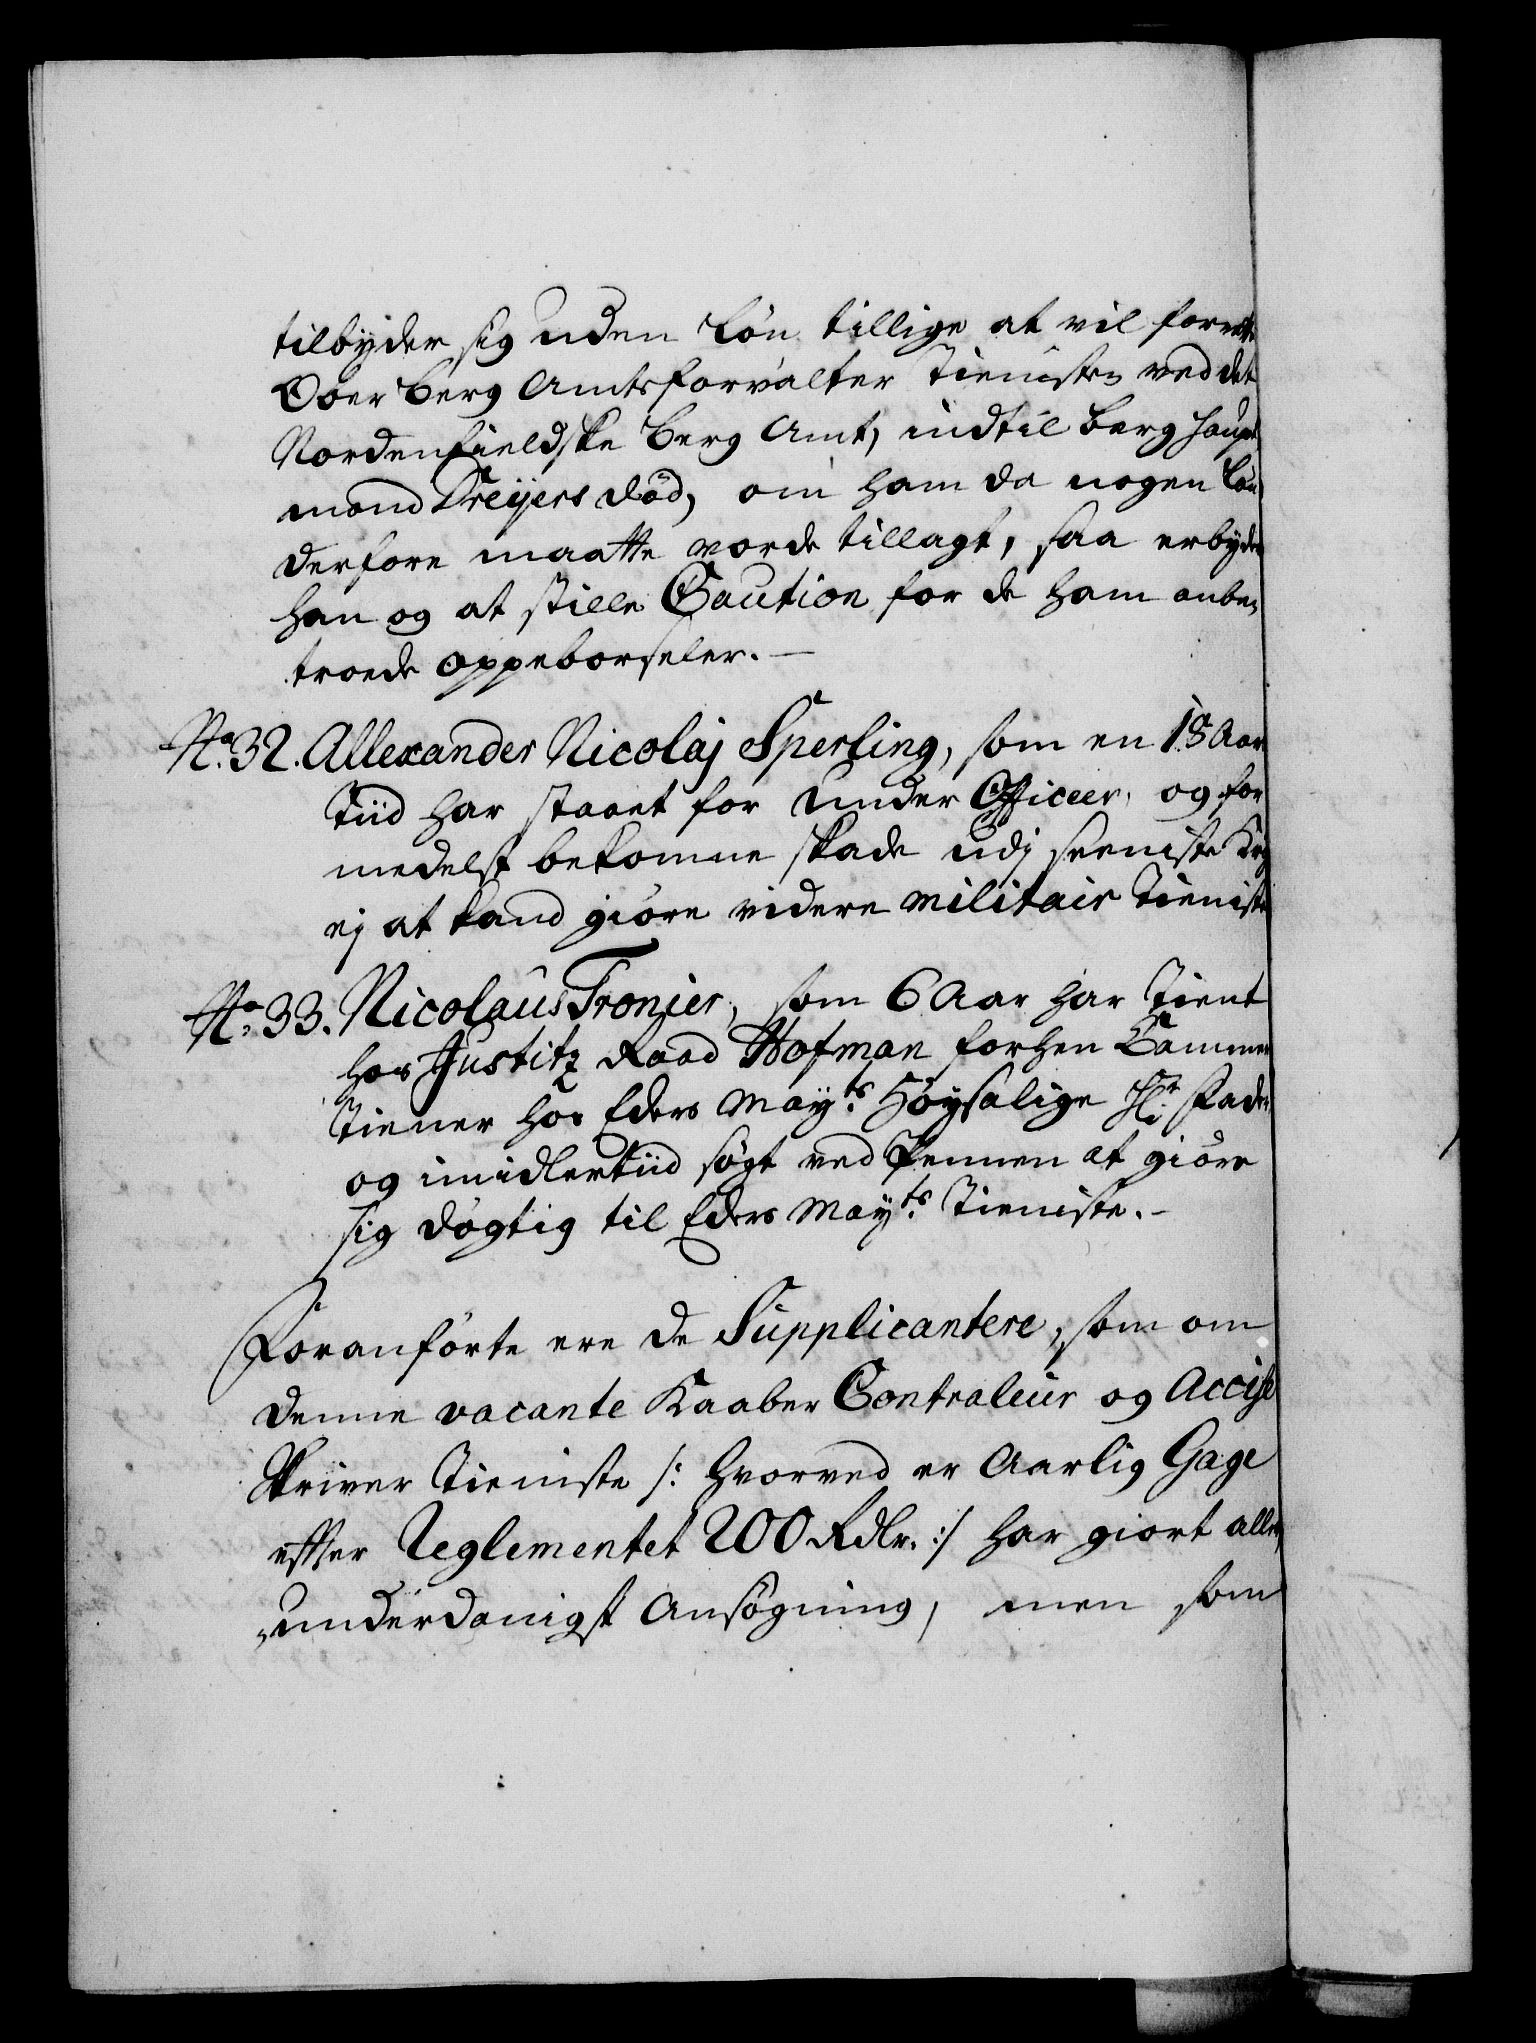 tilbyder sig uden Løn tillige at vil forrette
Ober Berg Amtsforvalter Tieniste ved det
Nordenfieldske Berg Amt, indtil Berg Haupt
mand Dreyers død, om ham da nogen Løn
derfore maatte vorde tillagt, saa erbyder
han og at stille Caution for de ham anbe„
troede oppeborseler. —
No. 32. Allexander Nicolaj Sperling, som en 18 Aar
Tiid har staaet for Under Officeer, og for
medelst bekomne skade udj seeniste Krig
ej at kand giøre videre militair Tieniste
No. 33. Nicolaus Fronier, som 6 Aar har Tient
hos Justitz Raad Hofman forhen Cammer
Tiener hos Eders Mayts. Høysalige Hr. Fader
og imidlertiid søgt ved Pennen at giøre
sig døgtig til Eders Mayts. Tieniste. –
Foranførte ere de Supplicantere, som om
denne vacante Kaaber Contraleur og Accise
Skriver Tieniste /: hvorved er Aarlig Gage
effter Reglementet 200 Rdlr. :/ har giort aller„
„underdanigst Ansøgning, men som